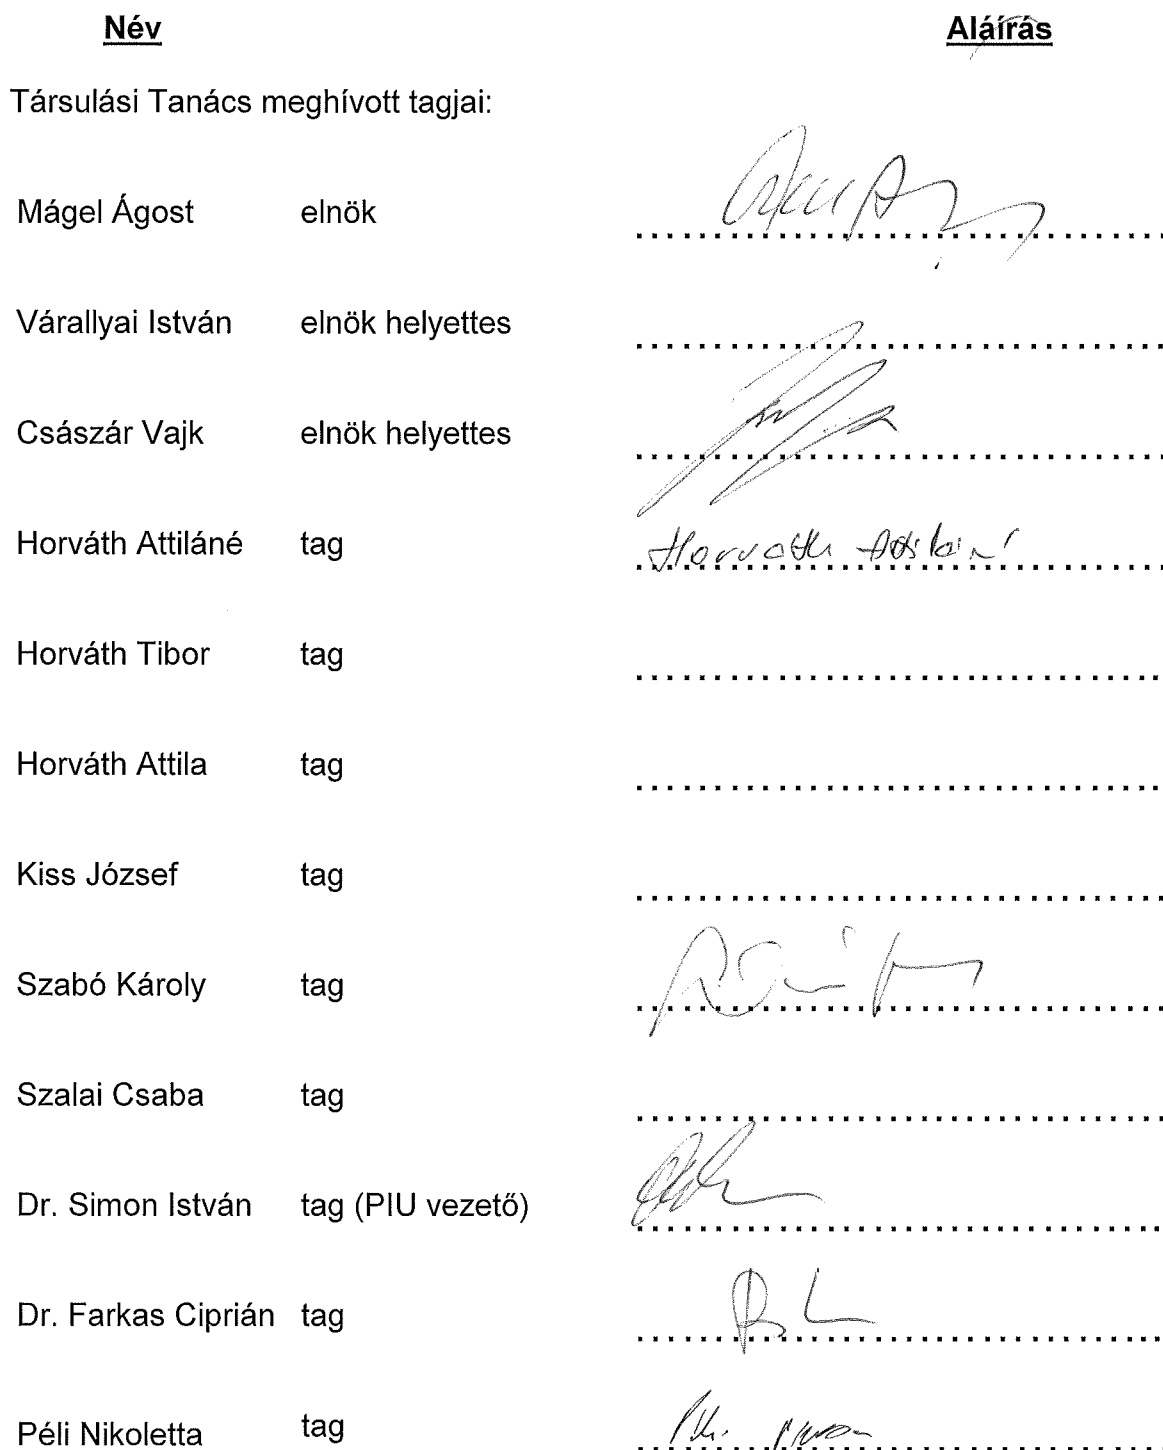 Név Aláírás
Társulási Tanács meghívott tagjai:
Mágel Ágost elnök ................................
Várallyai István elnök helyettes ................................
Császár Vajk elnök helyettes ................................
Horváth Attiláné tag Horváth Attiláné
Horváth Tibor tag ................................
Horváth Attila tag ................................
Kiss József tag ................................
Szabó Károly tag ................................
Szalai Csaba tag ................................
Dr. Simon István tag (PIU vezető) ................................
Dr. Farkas Ciprián tag ................................
Péli Nikoletta tag ................................